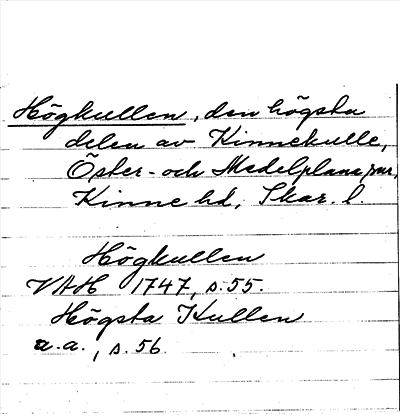 Högkullen, den högsta
delen av Kinnekulle,
Öster- och Medelplana snr,
Kinne hd, Skar. l.
Högkullen
VAH 1747, s. 55.
Högsta Kullen
a.a., s. 56